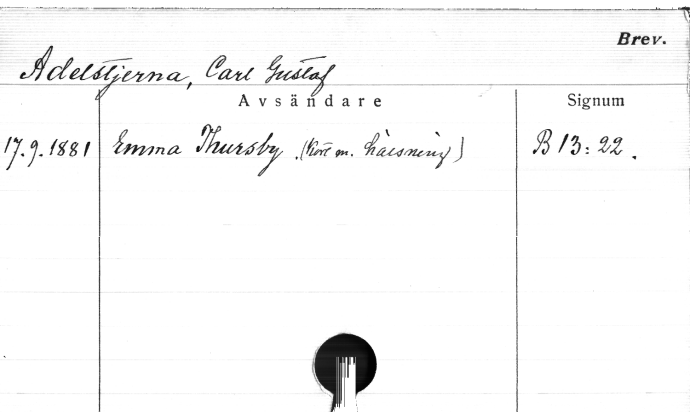 Brev.
Adelstjerna, Carl Gustaf
Avsändare Signum
17.9.1881 Emma Thursby. (Kort m. hälsning) B 13: 22.